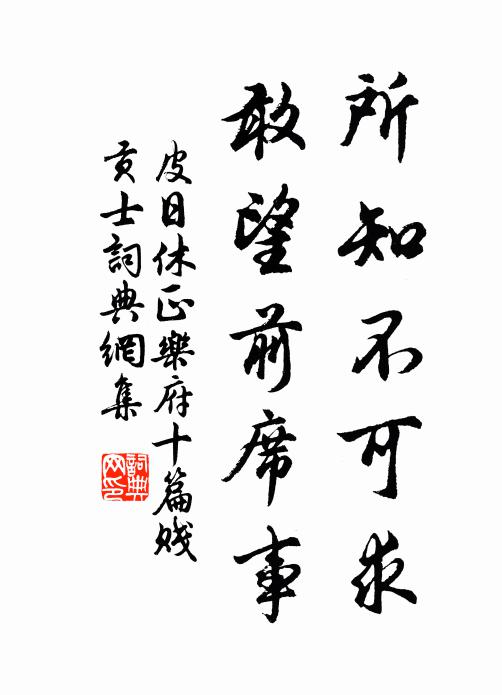 所知不可求
敢望前席事
皮日休正樂府十篇賤
貢士詞典網集
詞典網印